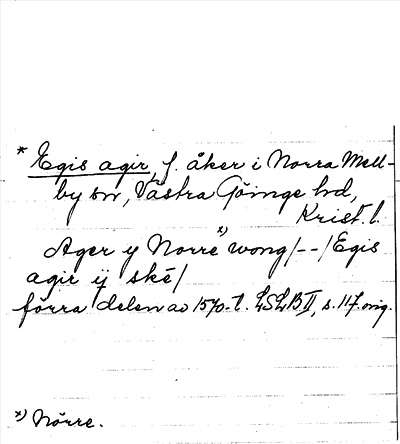 * Egis agir, f. åker i Norra Mell-
by sn, Västra Göinge hd,
Krist. l.
Ager y Norre x) wong/--/Egis
agir ij ské/
förra delen av 1570-t. LSLB II, s. 117. orig.
x) Nörre.